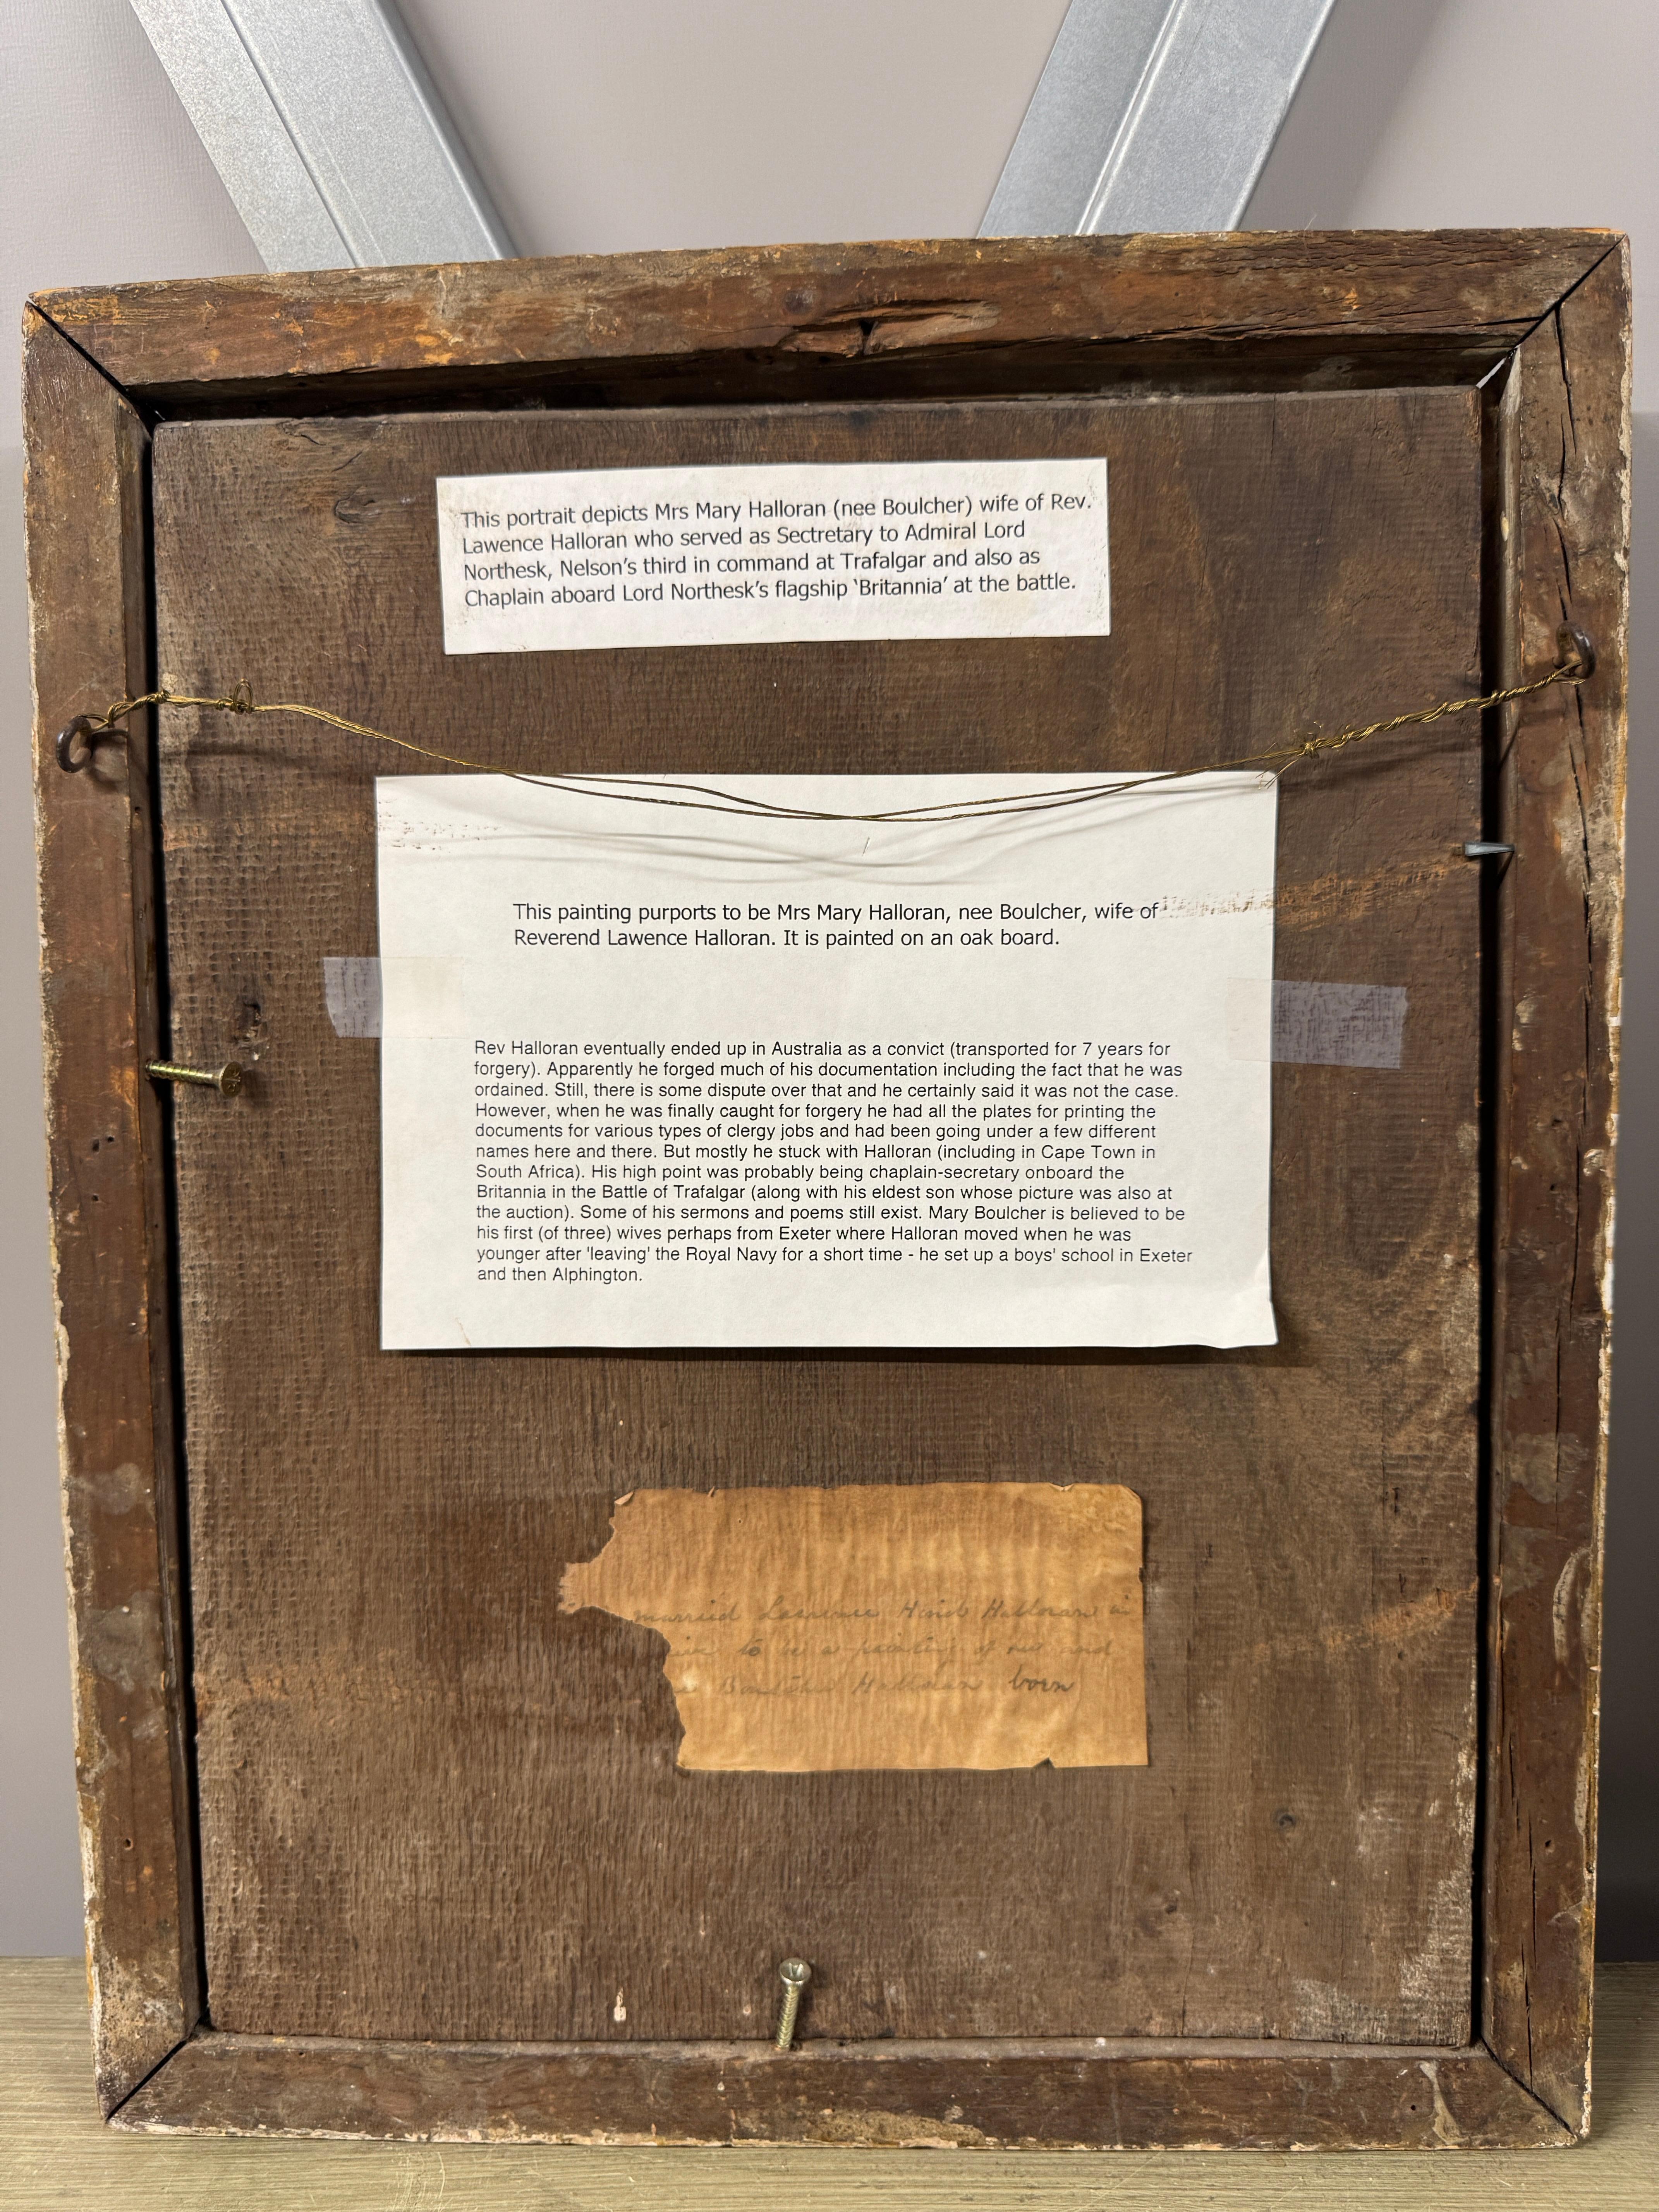 This portrait depicts Mrs Mary Halloran (nee Boulcher) wife of Rev.
Lawence Halloran who served as Sectretary to Admiral Lord
Northesk, Nelson's third in command at Trafalgar and also as
Chaplain aboard Lord Northesk's flagship 'Britannia' at the battle.
This painting purports to be Mrs Mary Halloran, nee Boulcher, wife of
Reverend Lawence Halloran. It is painted on an oak board.
Rev Halloran eventually ended up in Australia as a convict (transported for 7 years for
forgery). Apparently he forged much of his documentation including the fact that he was
ordained. Still, there is some dispute over that and he certainly said it was not the case.
However, when he was finally caught for forgery he had all the plates for printing the
documents for various types of clergy jobs and had been going under a few different
names here and there. But mostly he stuck with Halloran (including in Cape Town in
South Africa). His high point was probably being chaplain-secretary onboard the
Britannia in the Battle of Trafalgar (along with his eldest son whose picture was also at
the auction). Some of his sermons and poems still exist. Mary Boulcher is believed to be
his first (of three) wives perhaps from Exeter where Halloran moved when he was
younger after 'leaving' the Royal Navy for a short time - he set up a boys' school in Exeter
and then Alphington.
married Halloran
to be a painting of
Halloran born